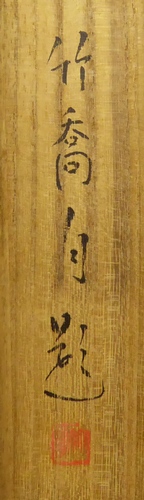 竹喬自題